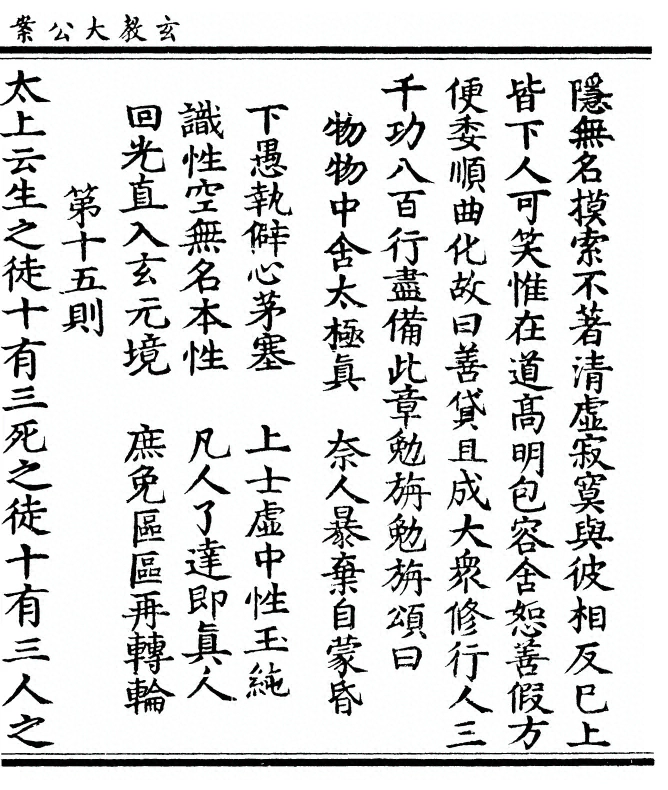 玄教大公案
隱無名摸索不著清虛寂寞與彼相反巳上
皆下人可笑惟在道髙明包容含恕善假方
便委順曲化故曰善貸且成大衆修行人三
千功八百行盡備此章勉旃勉旃頌曰
物物中含太極眞　奈人暴棄自蒙昏
下愚執僻心茅塞　上士虛中性玉純
識性空無名本性　凡人了達即眞人
回光直入玄元境　庶免區區再轉輪
第十五則
太上云生之徒十有三死之徒十有三人之